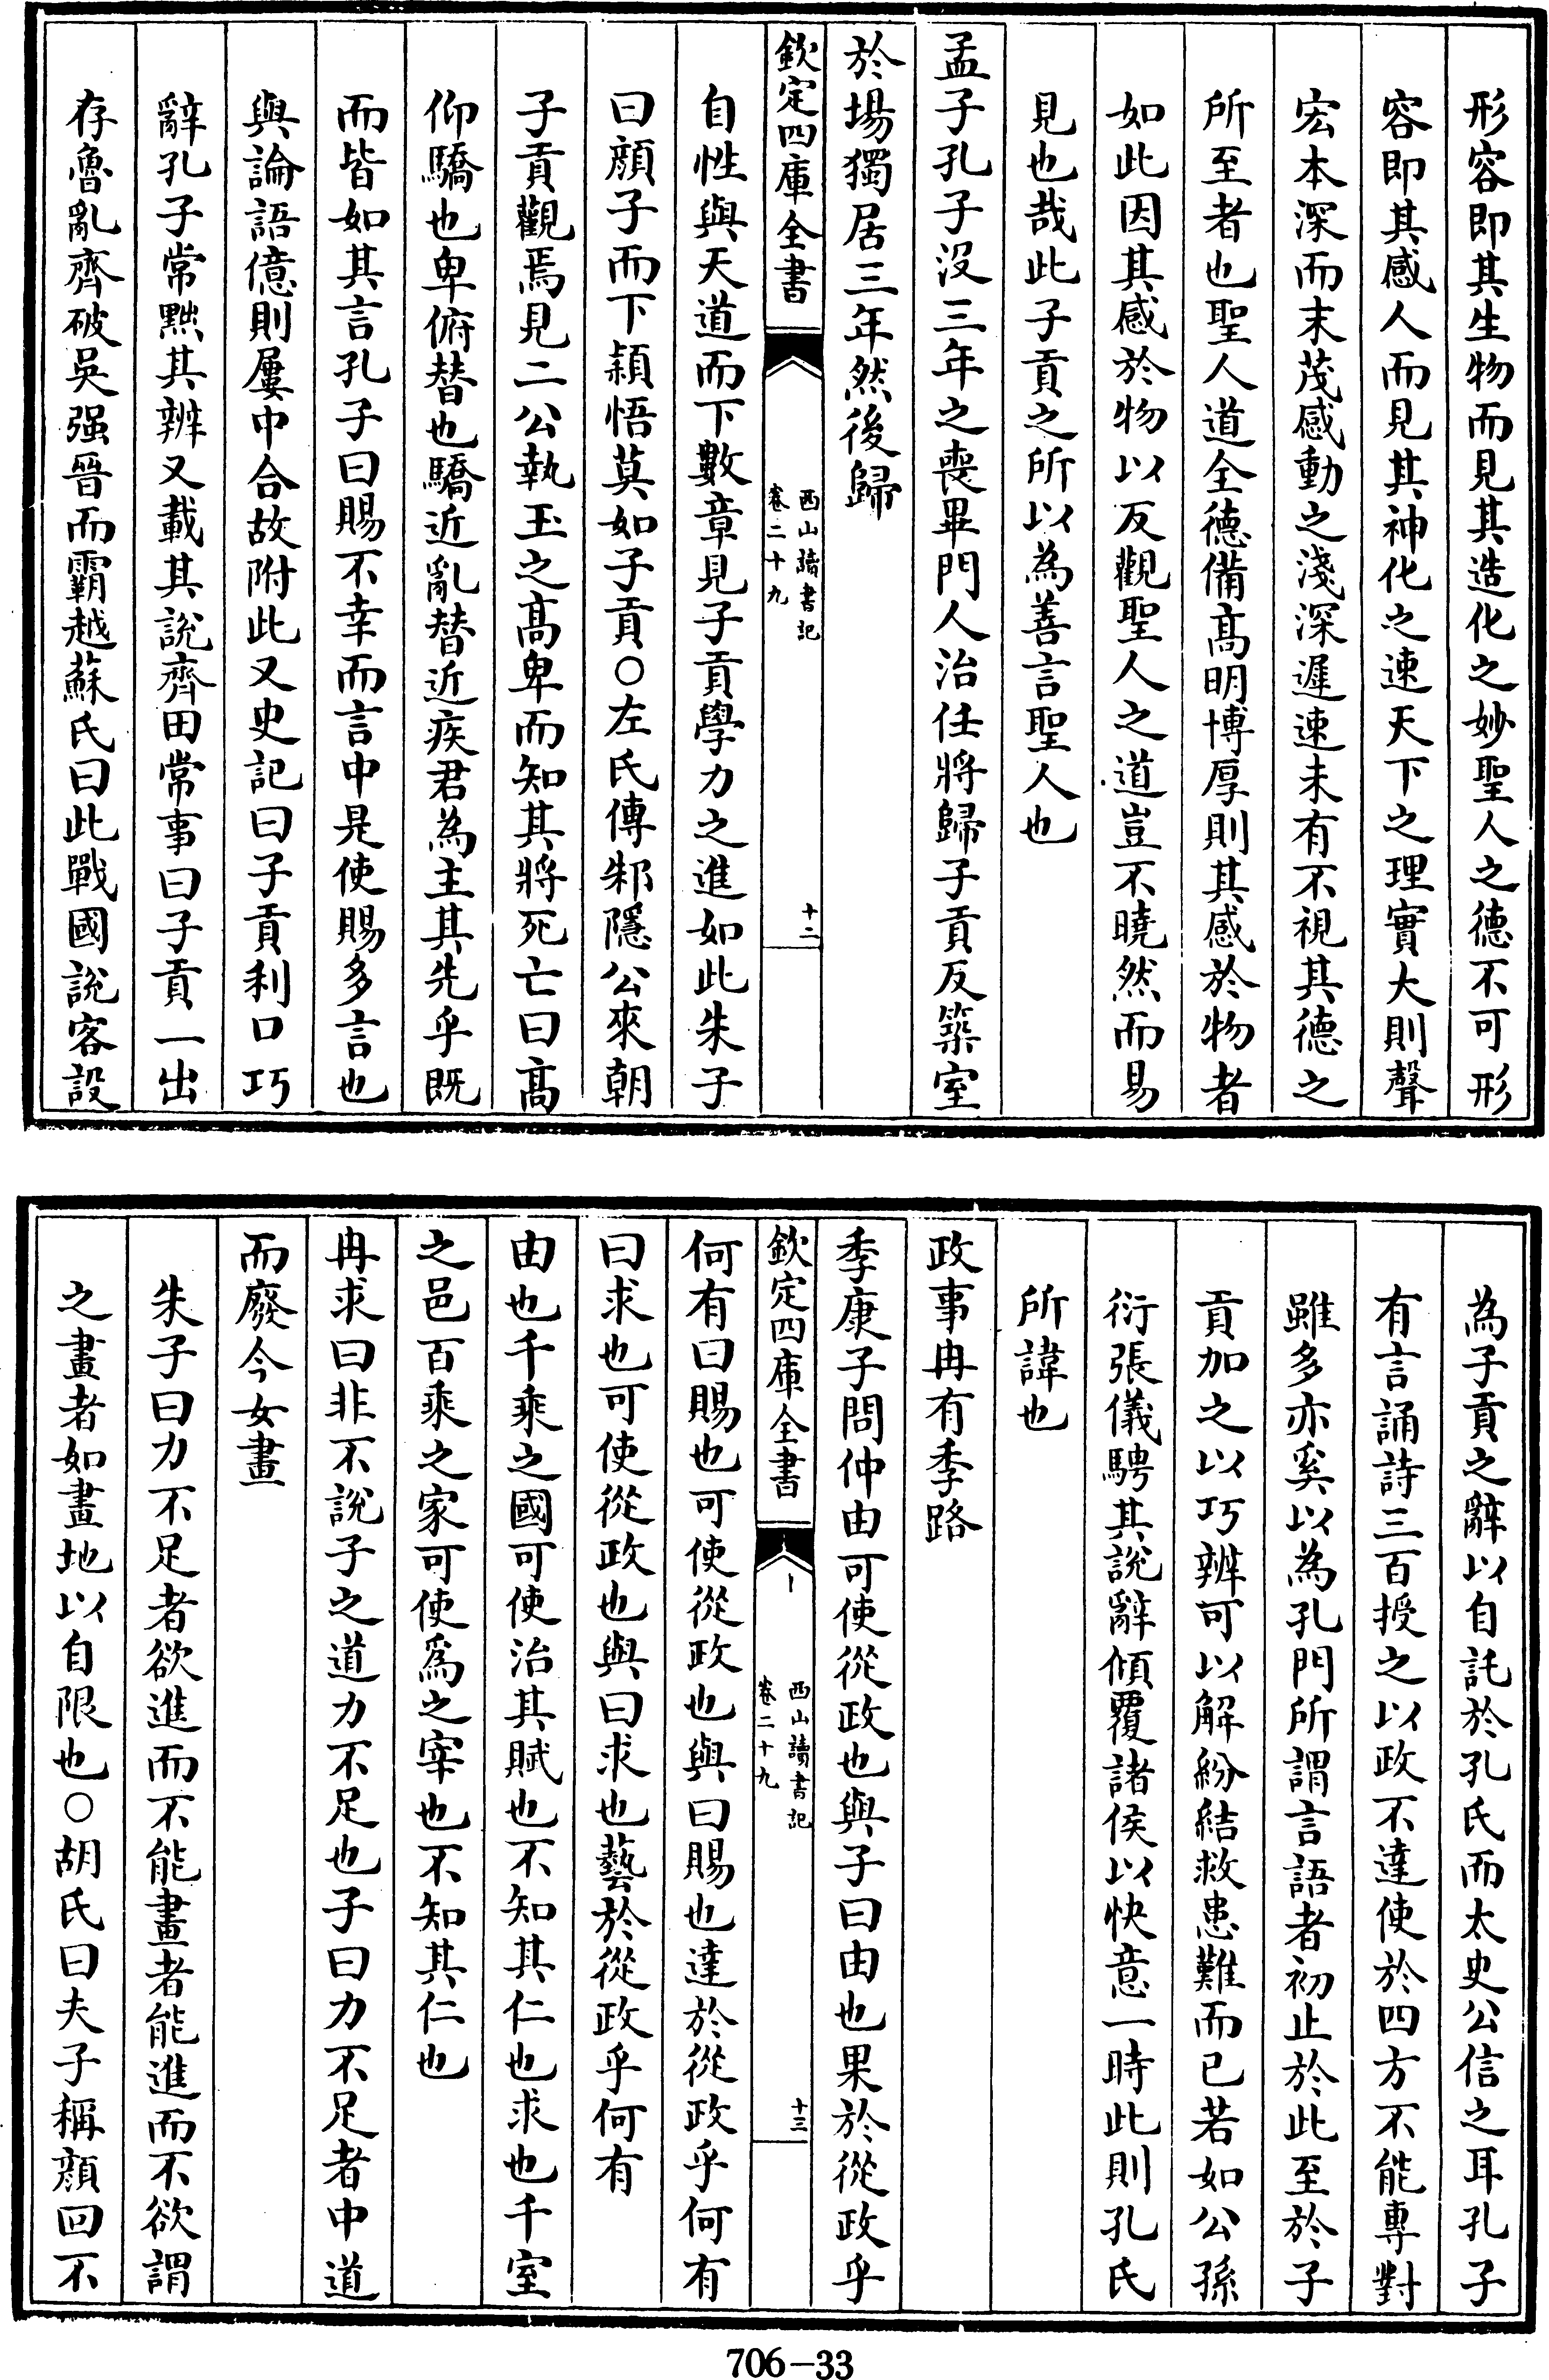 形容即其生物而見其造化之妙聖人之德不可形
容即其感人而見其神化之速天下之理實大則聲
宏本深而末茂感動之淺深遲速未有不視其德之
所至者也聖人道全德備髙明博厚則其感於物者
如此因其感於物以反觀聖人之道豈不曉然而易
見也哉此子貢之所以為善言聖人也
孟子孔子沒三年之喪畢門人治任將歸子貢反築室
於場獨居三年然後歸
欽定四庫全書
西山讀書記
卷二十九
十二
自性與天道而下數章見子貢學力之進如此朱子
曰顔子而下頴悟莫如子貢○左氏傳邾隱公來朝
子貢觀焉見二公執玉之髙卑而知其將死亡曰髙
仰驕也卑俯替也驕近亂替近疾君為主其先乎既
而皆如其言孔子曰賜不幸而言中是使賜多言也
與論語億則屢中合故附此又史記曰子貢利口巧
辭孔子常黜其辨又載其說齊田常事曰子貢一出
存魯亂齊破吳强晉而霸越蘇氏曰此戰國說客設
為子貢之辭以自託於孔氏而太史公信之耳孔子
有言誦詩三百授之以政不達使於四方不能專對
雖多亦奚以為孔門所謂言語者初止於此至於子
貢加之以巧辨可以解紛結救患難而已若如公孫
衍張儀騁其說辭傾覆諸侯以快意一時此則孔氏
所諱也
政事冉有季路
季康子問仲由可使從政也與子曰由也果於從政乎
欽定四庫全書
西山讀書記
卷二十九
十三
何有曰賜也可使從政也與曰賜也達於從政乎何有
曰求也可使從政也與曰求也藝於從政乎何有
由也千乘之國可使治其賦也不知其仁也求也千室
之邑百乘之家可使爲之宰也不知其仁也
冉求曰非不說子之道力不足也子曰力不足者中道
而廢今女畫
朱子曰力不足者欲進而不能畫者能進而不欲謂
之畫者如畫地以自限也○胡氏曰夫子稱顔回不
706-33